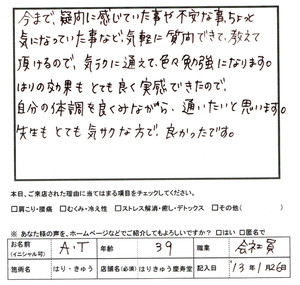 今まで、疑問に感じていた事や不安な事、ちょっと
気になっていた事など、気軽に質問できて、教えて
頂けるので、気ラクに通えて、色々勉強になります。
はりの効果もとても良く実感できたので、
自分の体調を良くみながら、通いたいと思います。
先生もとても気サクな方で、良かったです。
本日、ご来店された理由に当てはまる項目をチェックしてください。
□肩こり・腰痛 □むくみ・冷え性 □ストレス解消・癒し・デトックス □その他( )
★あなた様の声を、ホームページなどでご紹介してもよろしいですか? □はい □匿名で
お名前 (イニシャル可) A.T 年齢 39 職業 会社員
施術名 はり・きゅう 店舗名(必須) はりきゅう慶寿堂 記入日 '13年1月26日